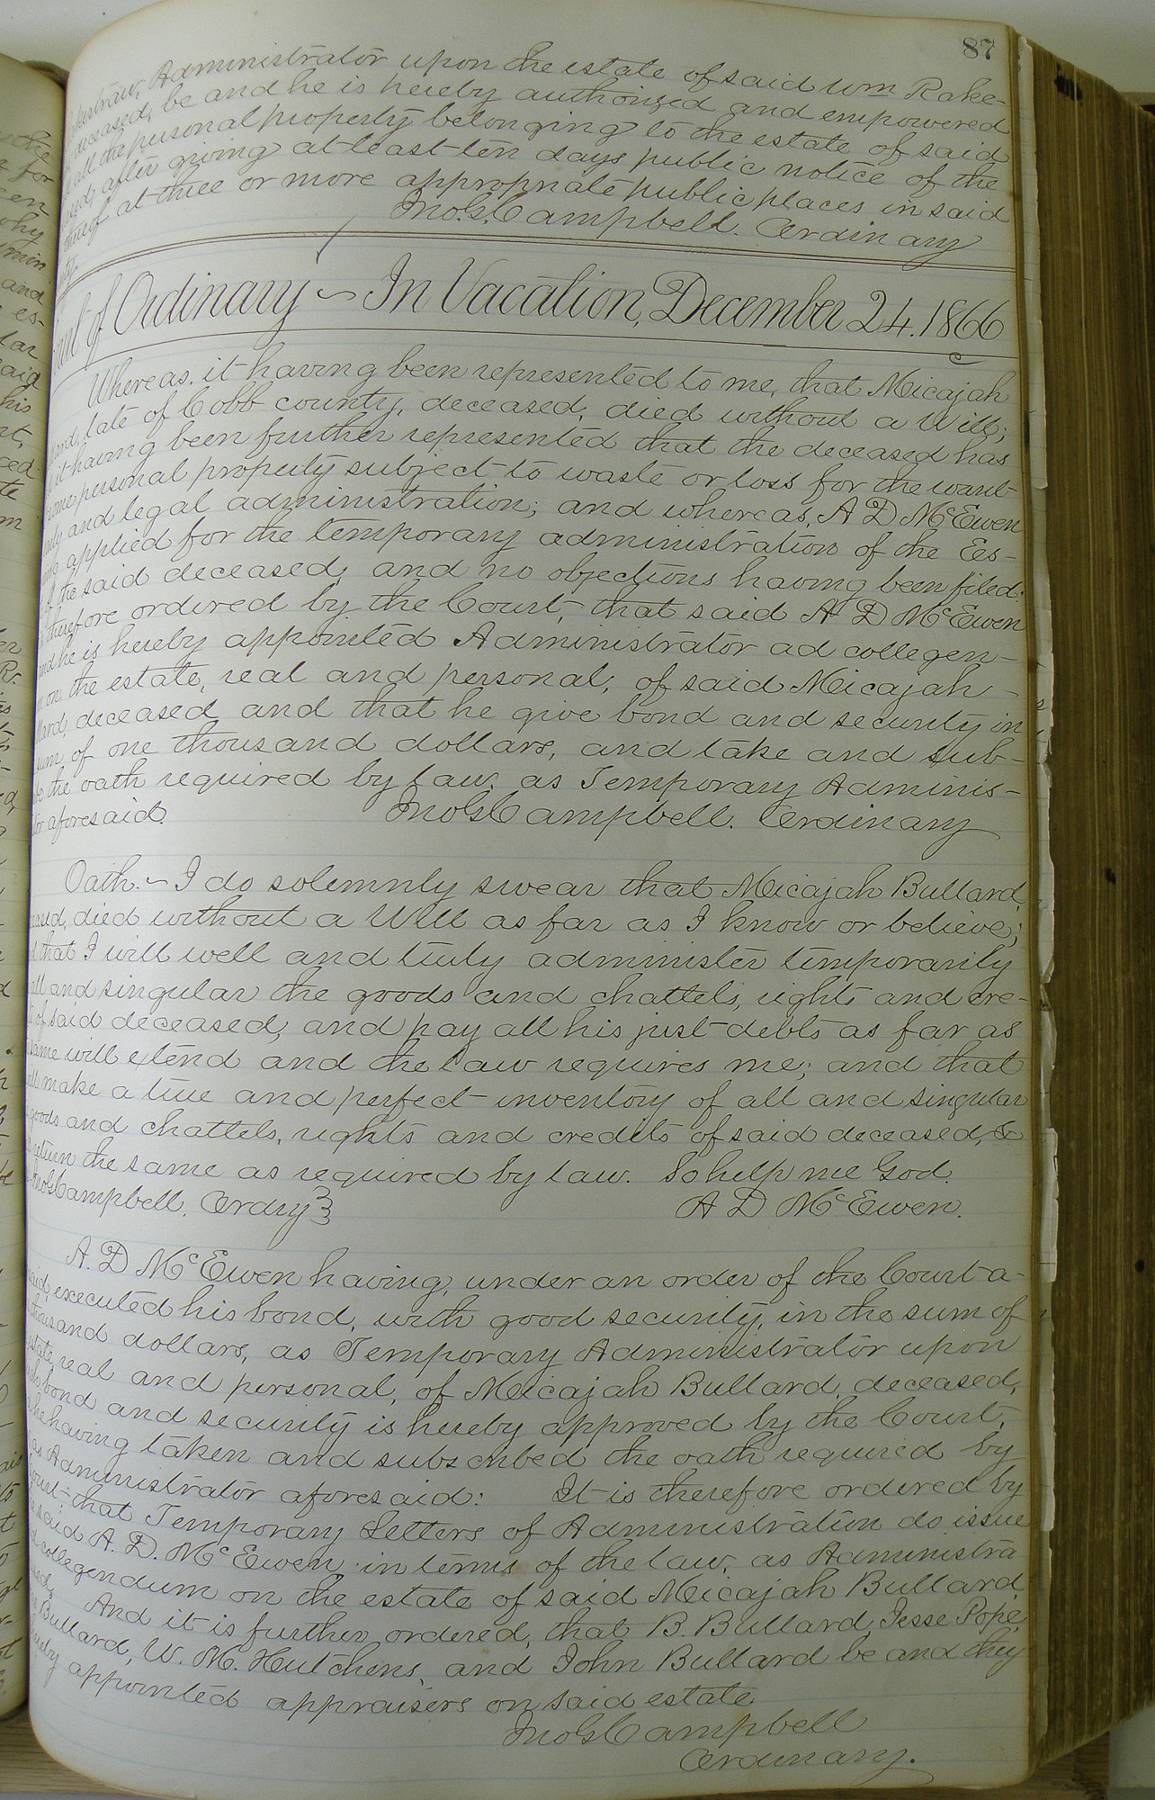 87
Administrator upon the estate of said Wm Rake-
deceased, be and he is hereby authorized and empowered
all the personal property belonging to the estate of said
after giving at least ten days public notice of the
at three or more appropriate public places in said
Jno. G. Campbell. Ordinary
of Ordinary ~ In Vacation, December 24. 1866
Whereas. it having been represented to me, that Micajah
late of Cobb county, deceased, died without a Will;
it having been further represented that the deceased has
some personal property subject to waste or loss for the want
and legal administration; and whereas, A D McEwen
applied for the temporary administration of the Es-
of the said deceased; and no objections having been filed:
therefore ordered by the Court, that said A D McEwen
and he is hereby appointed Administrator ad collegen-
on the estate, real and personal, of said Micajah
deceased and that he give bond and security in
sum of one thousand dollars, and take and sub-
the oath required by law, as Temporary Adminis-
aforesaid.
Jno G Campbell. Ordinary
Oath.~ I do solemnly swear that Micajah Bullard,
died without a Will as far as I know or believe;
that I will well and truly administer temporarily
all and singular the goods and chattels, rights and cre-
of said deceased, and pay all his just debts as far as
same will extend and the law requires me; and that
make a true and perfect inventory of all and singular
goods and chattels, rights and credits of said deceased, &
return the same as required by law. So help me God.
Jno G Campbell. Ordry }
A D McEwen.
A. D McEwen having, under an order of the Court a-
executed his bond, with good security, in the sum of
thousand dollars, as Temporary Administrator upon
estate, real and personal, of Micajah Bullard, deceased,
bond and security is hereby approved by the Court,
he having taken and subscribed the oath required by
as Administrator aforesaid: It is therefore ordered by
that Temporary Letters of Administration do issue
said A. D. McEwen in terms of the law, as Administra
collegendum on the estate of said Micajah Bullard,
And it is further ordered, that B. Bullard, Jesse Pope,
Bullard, W. M. Hutchens, and John Bullard be and they
appointed appraisers on said estate
Jno G Campbell
Ordinary.